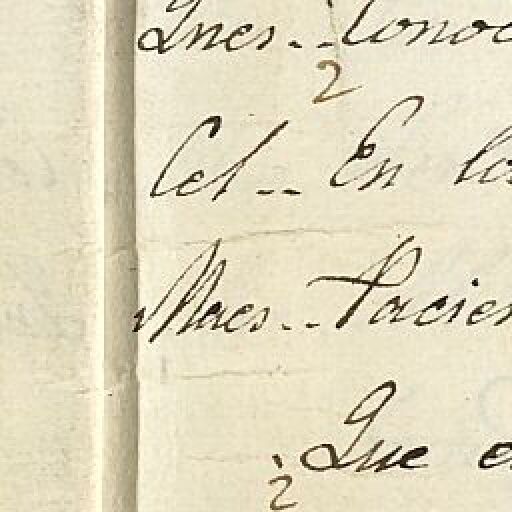 Ynes.. Conoc
2
Cel.. En lo
Maes.. Pacien
¿Que
2